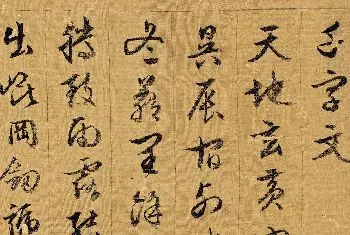 千字文
天地玄黄
昃辰宿列
冬藏閏餘
騰致雨露結
出崑岡劍號